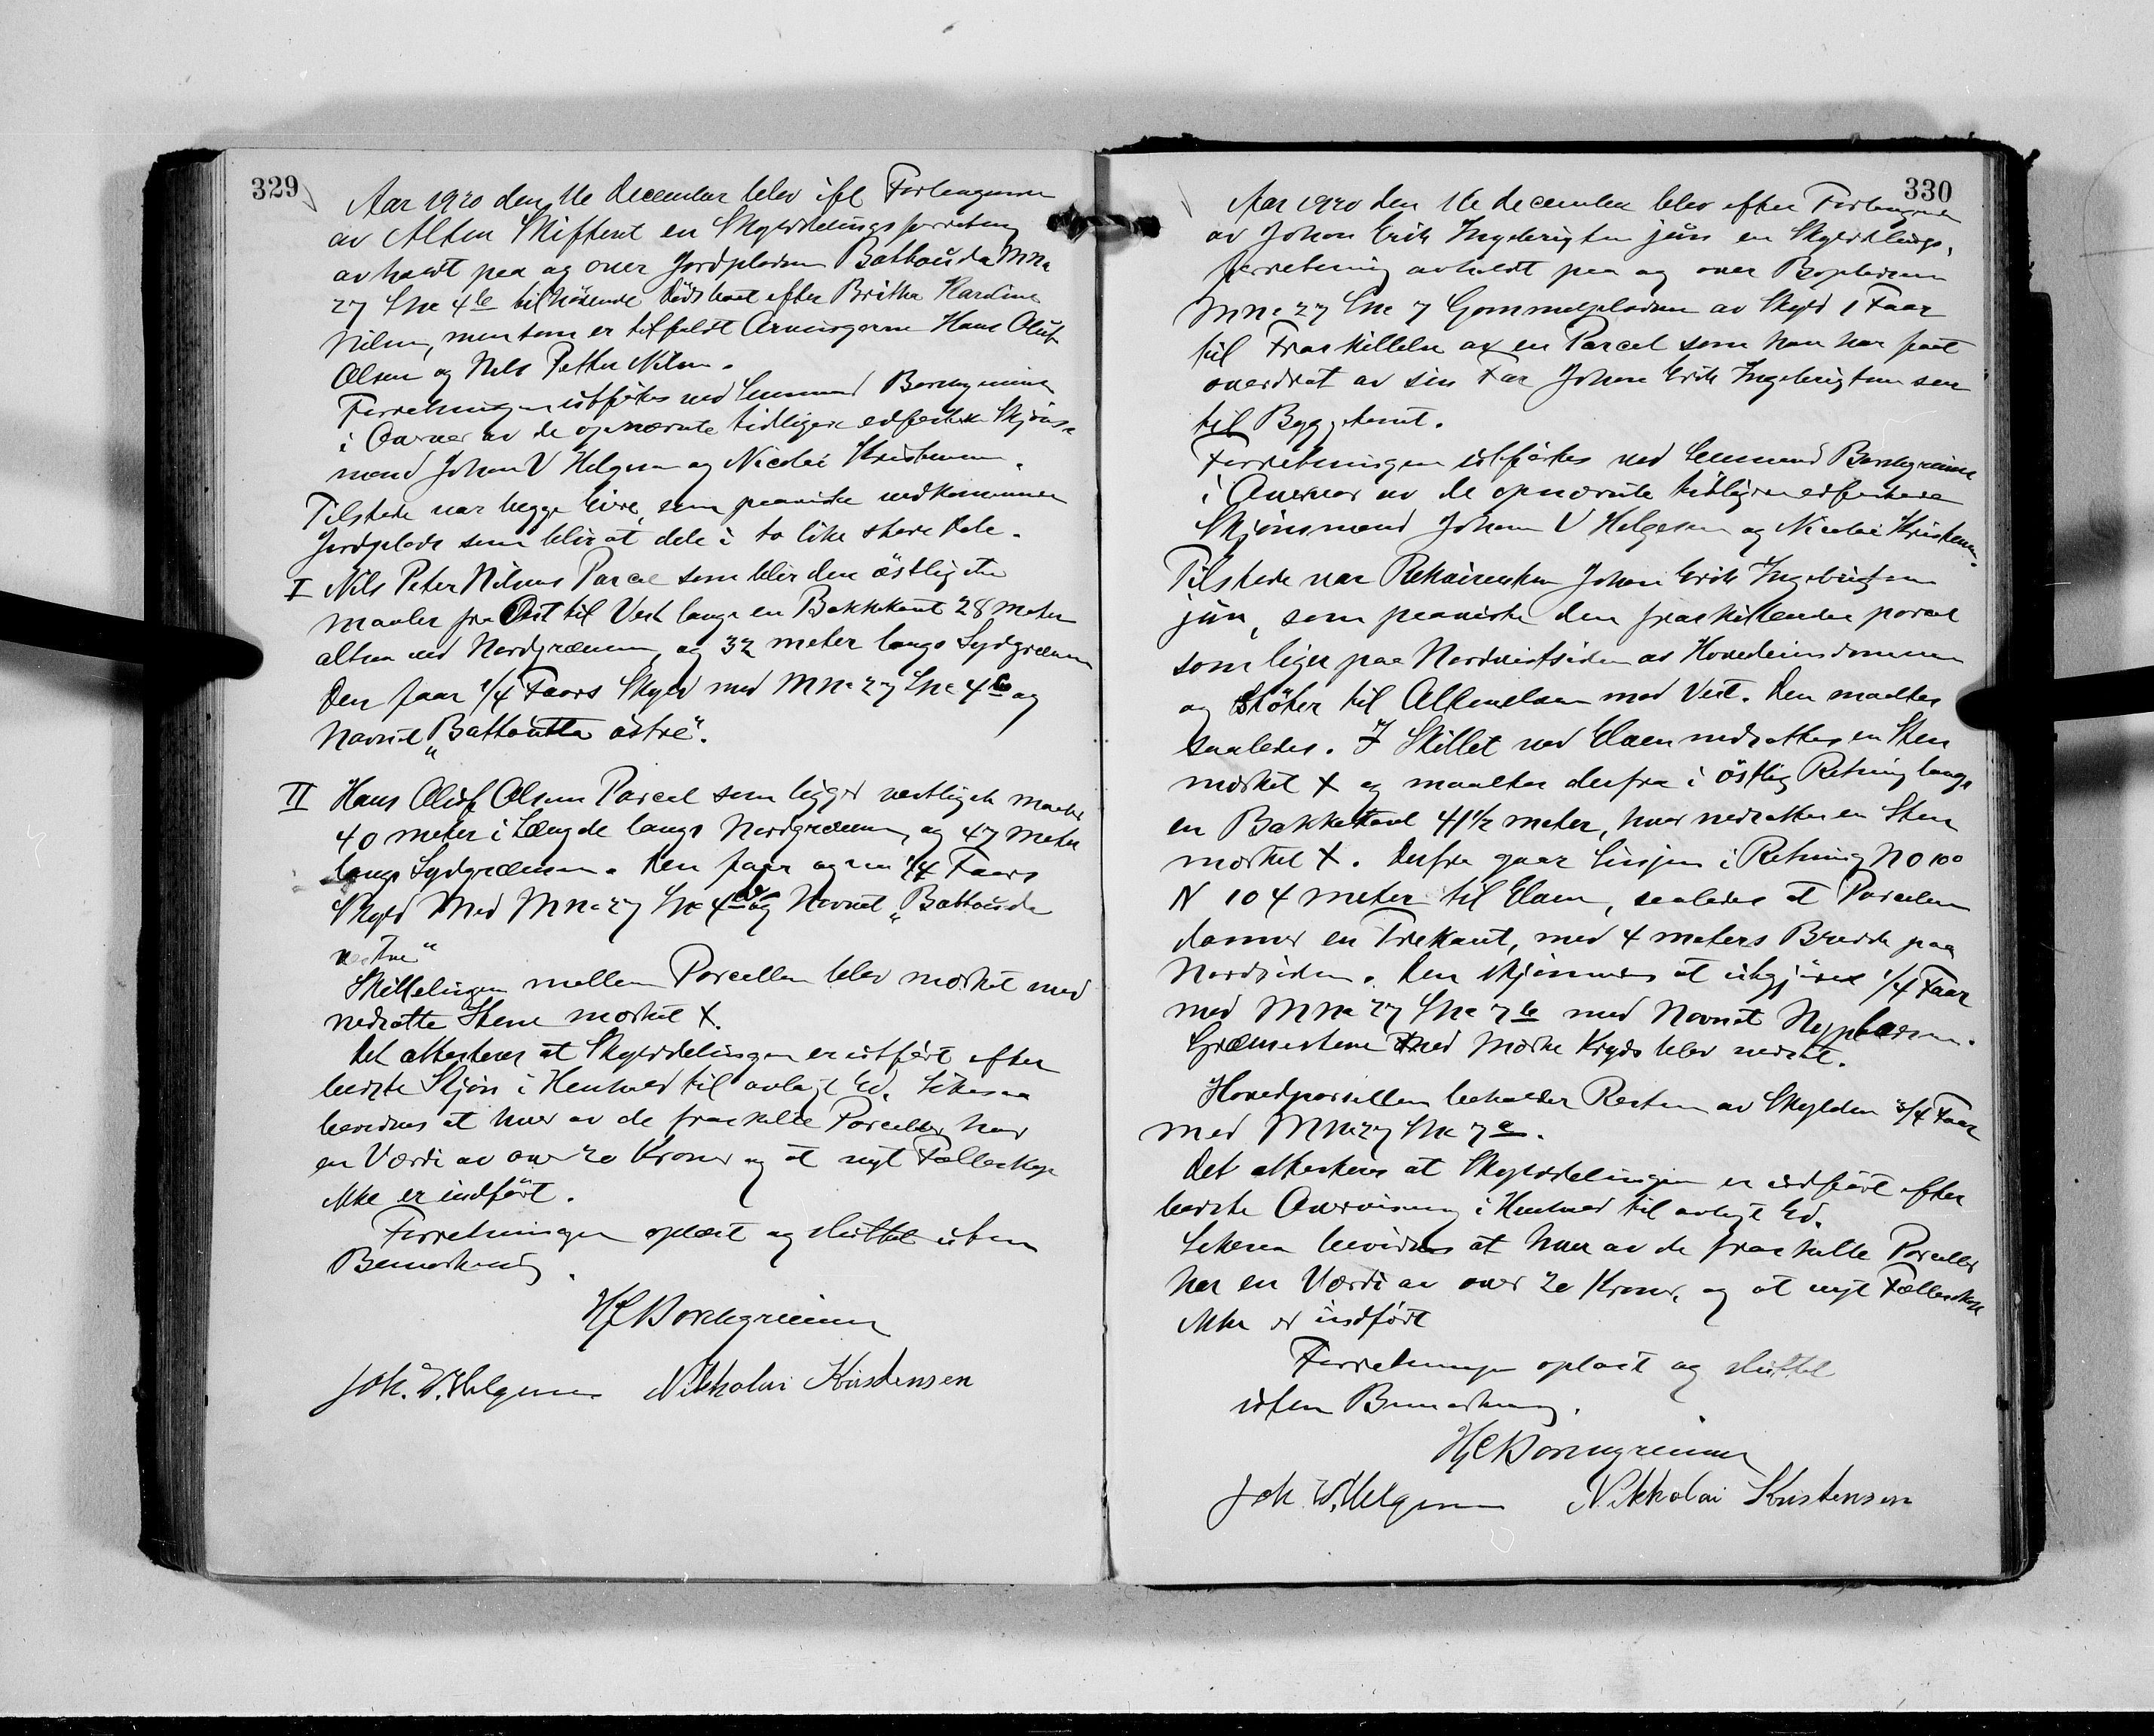 329
Aar 1920 den 16 December blev ifl Forlangende
av Alten Skifteret en Skylddelingsforretning
avholdt paa og over Jordpladsen Battouda Mno
27 Lno 4b tilhörende Dödsboet efter Brithe Kardine
Nilsen, men som er tilfaldt Arvingerne Hans Oluf
Olsen og Nils Petter Nilsen.
Forretningen utförtes ved Lensmand Borchgrevink
i Overvær av de opnævnte tidligere edfestede Skjöns-
mænd Johan V Helgesen og Nicolai Kristensen.
Tilstede var begge Eiere, som paaviste vedkommende
Jordplads som blir at dele i to like store Dele.
I Nils Peter Nilsens Parcel som blir den östligste
maaler fra Öst til Vest langs en Bakkekant 28 meter
altsaa ved Nordgrænsen, og 32 meter langs Sydgrænsen
Den faar 1/4 Faars Skyld med Mno 27 Lno 4b og
Navnet „Battoutta östre".
II Hans Oluf Olsens Parcel som ligger vestligst maaler
40 meter i Længde langs Nordgrænsen, og 47 meter
langs Sydgrænsen. Den faar ogsaa 1/4 Faars
Skyld Med Mno 27 Lno 4 og Navnet „Battouda
vestre"
Skillelinjen mellem Parcellen blev mærket med
nedsatte Stene mærket X.
Det attesteres at Skylddelingen er utfört efter
bedste Skjön i Henhold til avlagt Ed. Likesaa
bevidnes at hver av de fraskilte Parceller har
en Værdi av over 20 Kroner og at nyt Fælleskap
ikke er indfört.
Forretningen oplæst og sluttet uten
Bemerkning.
HC Borchgrevink
Joh. V. Helgesen Nikkolai Kristensen
330
Aar 1920 den 16 december blev efter Forlangende
av Johan Erik Ingebrigtsen jun en Skylddelings-
forretning avholdt paa og over Bopladsen
Mno 27 Lno 7 Gammelpladsen av Skyld 1 Faar
til Fraskillelse av en Parcel som han har faat
overdrat av sin Far Johan Erik Ingebrigtsen sen
til Byggetomt.
Forretningen utförtes ved Lensmand Borchgrevink
i Overvær av de opnævnte tidligere edfestede
Skjönsmænd Johan V Helgesen og Nicolai Kristensen.
Tilstede var Rekvirenten Johan Erik Ingebrigtsen
jun, som paaviste den fraskillende parcel
som liger paa Nordvestsiden av Hovedeiendommen
og stöter til Altenelven mod Vest. Den maaltes
saaledes. I Skillet ved Elven nedsattes en Sten
mærket X og maaltes derfra i östlig Retning langs
en Bakkekant 41 1/2 meter, hvor nedsattes en Sten
mærket X. Derfra gaar Linjen i Retning NO 100
N 104 meter til Elven, saaledes at Parcelen
danner en Trekant, med 4 meters Bredde paa
Nordsiden. Den skjönnes at utgjöre 1/4 Faar
med Mno 27 Lno 7b med Navnet Nypladsen.
Grænsestene med Mærke Kryds blev nedsat.
Hovedparcellen beholder Resten av Skylden 3/4 Faar
med Mno 27 Lno 7a.
Det attesteres at Skylddelingen er utfört efter
bedste Overvisning i Henhold til avlagt Ed.
Likesaa bevidnes at hver av de fraskilte Parceller
har en Værdi av over 20 Kroner, og at nyt Fælleskap
ikke er indfört
Forretningen oplæst og sluttet
uten Bemærkning.
HC Borchgrevink
Joh. V. Helgesen Nikkolai Kristensen